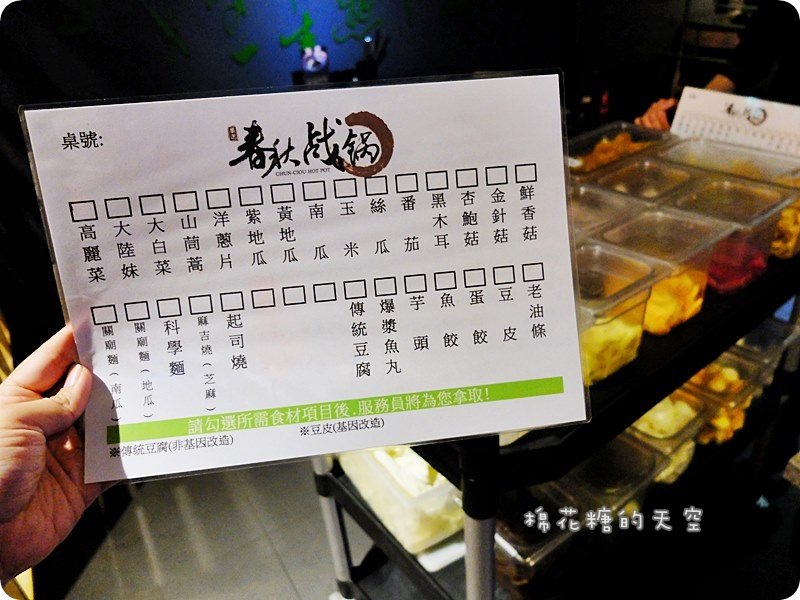 桌號:
春秋戲锅
CHUN-CIOU HOT POT
高麗菜
大陸妹
大白菜
山茼蒿
洋蔥片
紫地瓜
黃地瓜
南瓜
玉米
絲瓜
番茄
黑木耳
杏鮑菇
金針菇
鮮香菇
關廟麵(南瓜)
關廟麵(地瓜)
科學麵
麻吉燒(芝麻)
起司燒
傳統豆腐
爆漿魚丸
芋頭
魚餃
蛋餃
豆皮
老油條
請勾選所需食材項目後.服務員將為您拿取!
※傳統豆腐(非基因改造)
※豆皮(基因改造)
棉花糖的天空